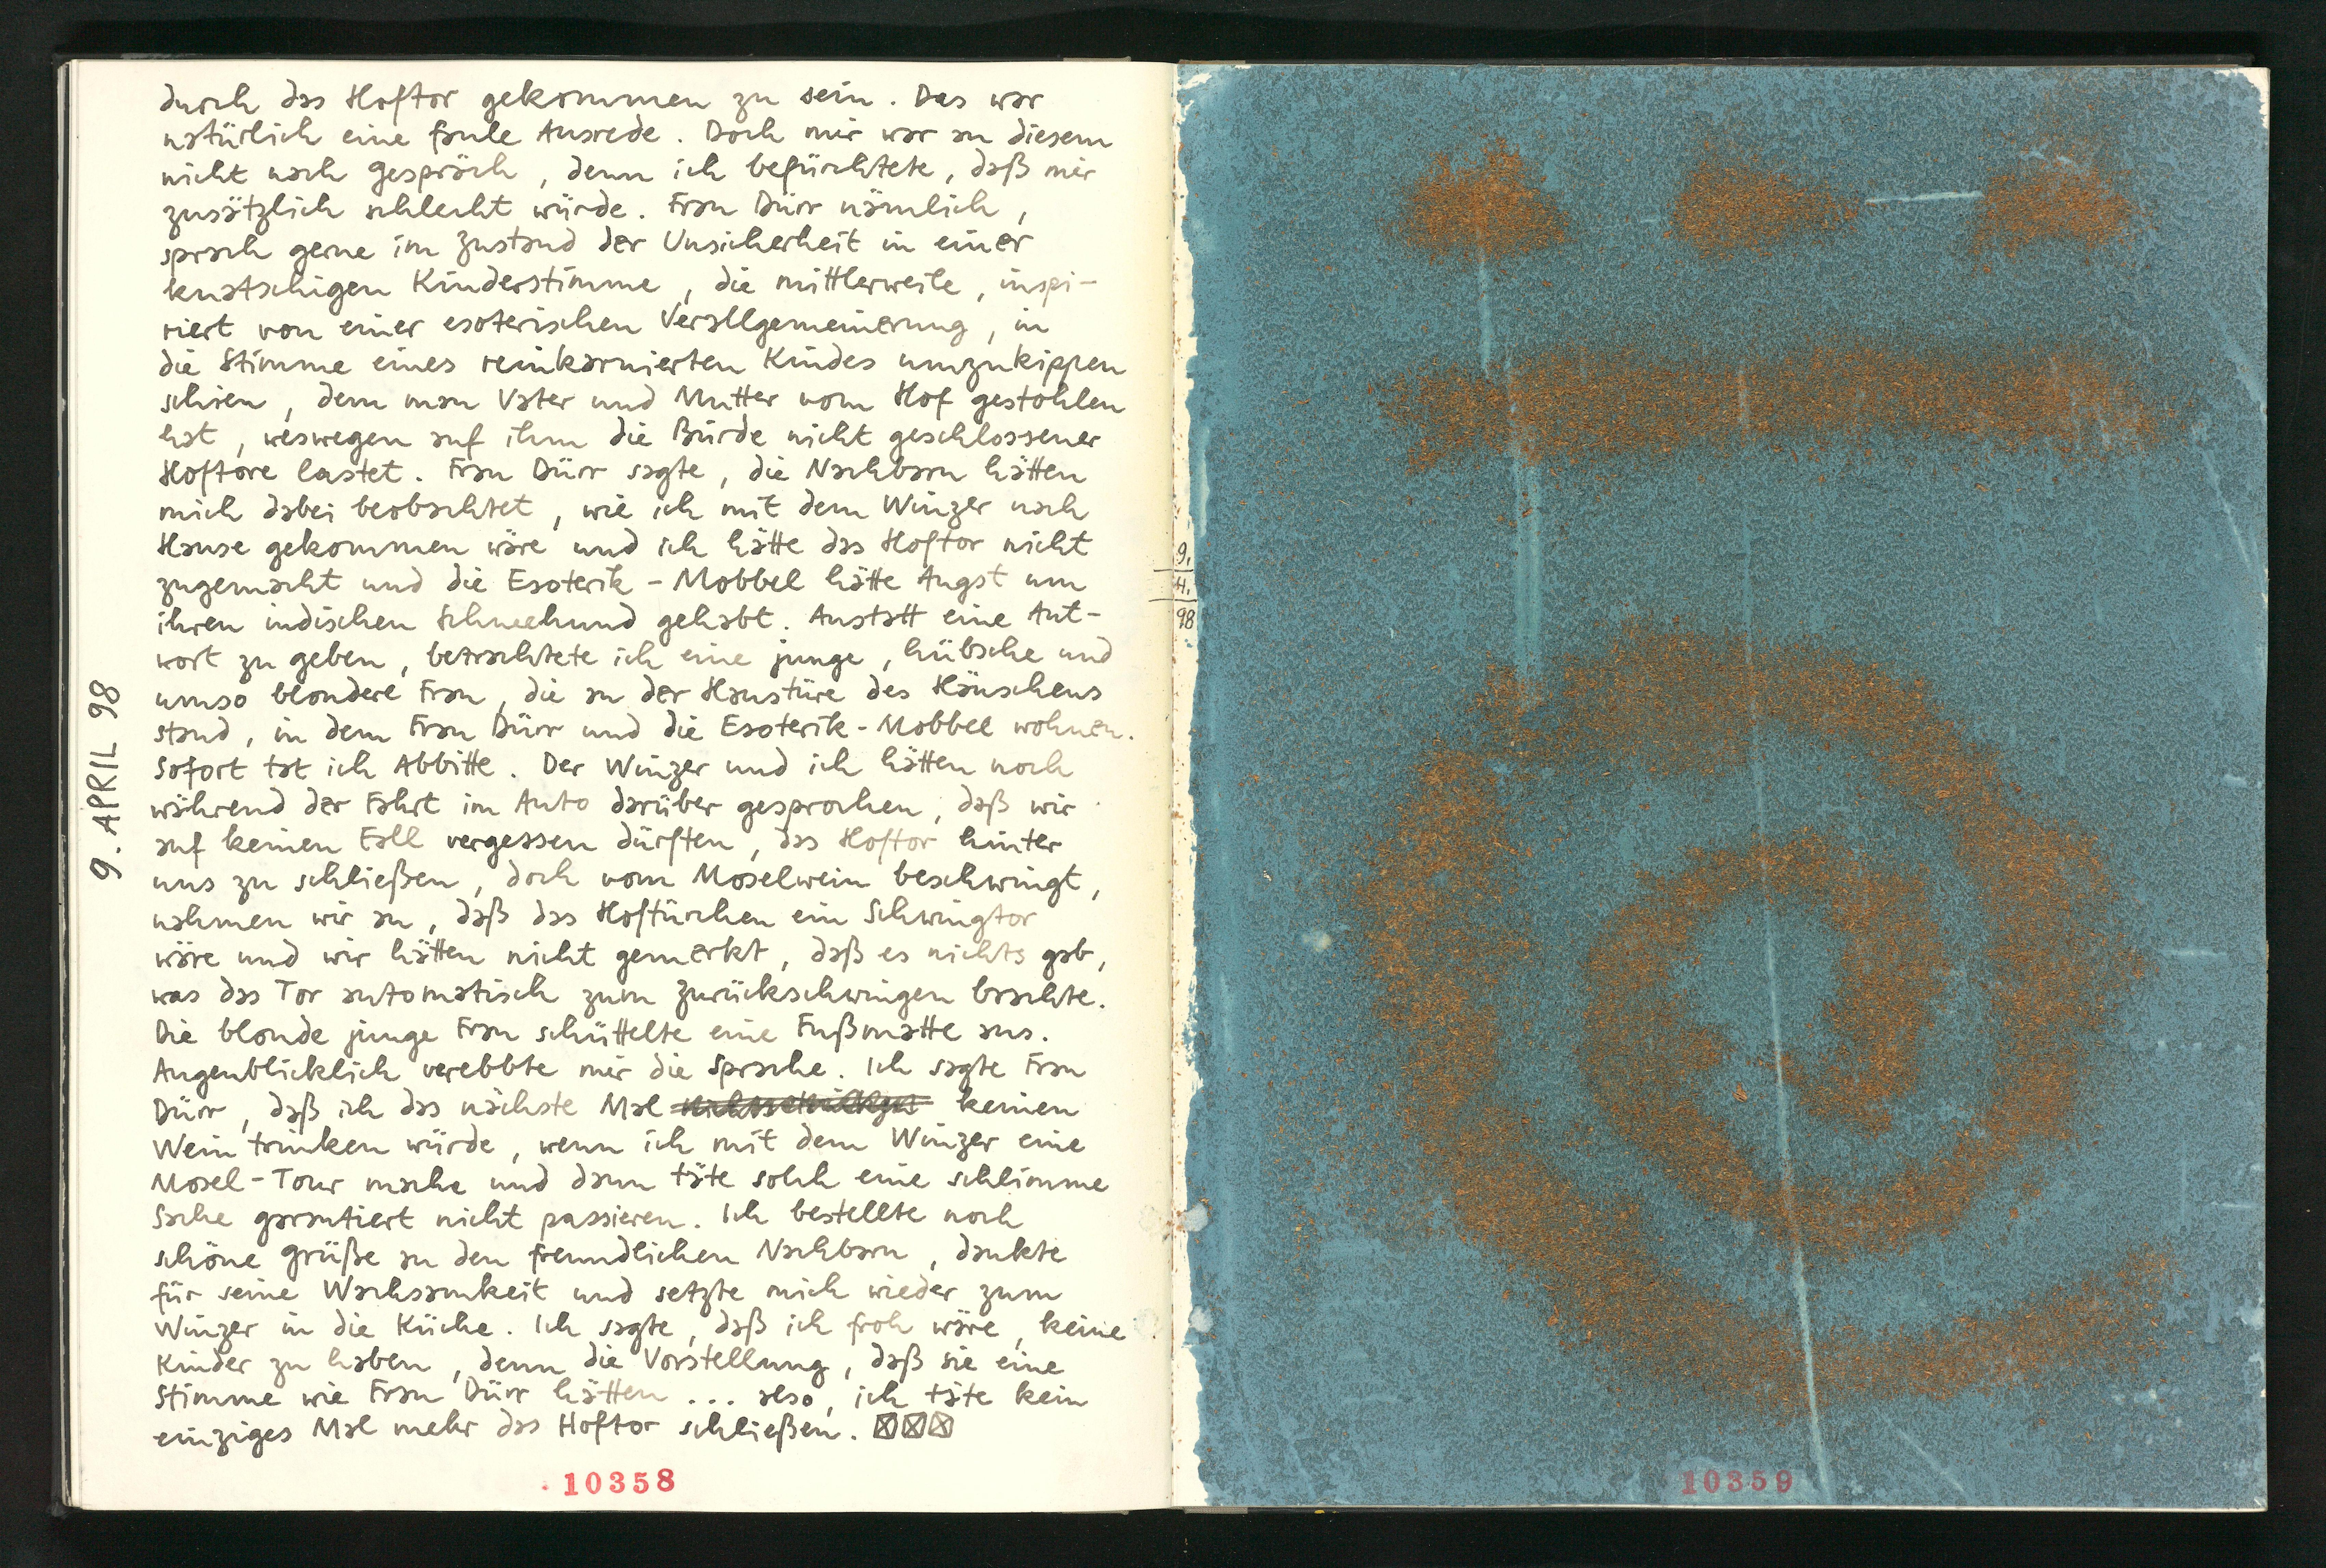 durch das Hoftor gekommen zu sein. Das war
natürlich eine faule Ausrede. Doch mir war an diesem
nicht nach Gespräch, denn ich befürchtete, daß mir
zusätzlich schlecht würde. Frau Dürr nämlich,
sprach gerne im Zustand der Unsicherheit in einer
knatschigen Kinderstimme, die mittlerweile, inspi-
riert von einer esoterischen Verallgemeinerung, in
die Stimme eines reinkarnierten Kindes umzukippen
schien, dem man Vater und Mutter vom Hof gestohlen
hat, weswegen auf ihm die Bürde nicht geschlossener
Hoftore lastet. Frau Dürr sagte, die Nachbarn hätten
mich dabei beobachtet, wie ich mit dem Winzer nach
Hause gekommen wäre und ich hätte das Hoftor nicht
zugemacht und die Esoterik-Mobbel hätte Angst um
ihren indischen Schneehund gehabt. Anstatt eine Ant-
wort zu geben, betrachtete ich eine junge, hübsche und
umso blondere Frau, die an der Haustüre des Häuschens
stand, in dem Frau Dürr und die Esoterik-Mobbel wohnen.
Sofort tat ich Abbitte. Der Winzer und ich hätten noch
während der Fahrt im Auto darüber gesprochen, daß wir
auf keinen Fall vergessen dürften, das Hoftor hinter
uns zu schließen, doch vom Moselwein beschwingt,
nahmen wir an, daß das Hoftürchen ein Schwingtor
wäre und wir hätten nicht gemerkt, daß es nichts gab,
was das Tor automatisch zum Zurückschwingen brachte.
Die blonde junge Frau schüttelte eine Fußmatte aus.
Augenblicklich verebbte mir die Sprache. Ich sagte Frau
Dürr, daß ich das nächste Mal keinen
Wein trinken würde, wenn ich mit dem Winzer eine
Mosel-Tour mache und dann täte solch eine schlimme
Sache garantiert nicht passieren. Ich bestellte noch
schöne Grüße an den freundlichen Nachbarn, dankte
für seine Wachsamkeit und setzte mich wieder zum
Winzer in die Küche. Ich sagte, daß ich froh wäre, keine
Kinder zu haben, denn die Vorstellung, daß sie eine
Stimme wie Frau Dürr hätten ... also, ich täte kein
einziges Mal mehr das Hoftor schließen. ☒☒☒
9. APRIL 98
10358
9.
4.
98
10359